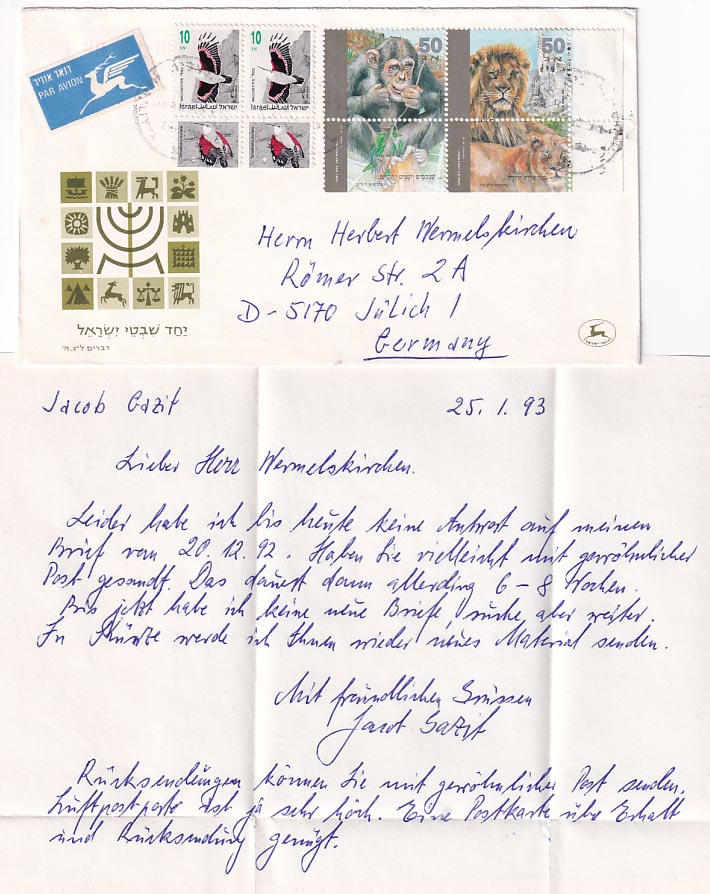 דואר אוויר
PAR AVION
10
10
Israel ישראל
Israel ישראל
50
50
Herrn Herbert Wermelskirchen
Römer Str. 2A
D-5170 Jülich 1
Germany
יַחַד שִׁבְטֵי יִשְׂרָאֵל
דברים ל"ג,ה'
Jacob Gazit 25.1.93
Lieber Herr Wermelskirchen.
Leider habe ich bis heute keine Antwort auf meinen
Brief vom 20.12.92. Haben Sie vielleicht mit gewöhnlicher
Post gesandt. Das dauert dann allerding 6-8 Wochen.
Bis jetzt habe ich keine neue Briefe, suche aber weiter.
In Kürze werde ich Ihnen wieder neues Material senden.
Mit freundlichen Grüssen
Jacob Gazit
Rücksendungen können Sie mit gewöhnlicher Post senden.
Luftpostporto ist ja sehr hoch. Eine Postkarte über Erhalt
und Rücksendung genügt.